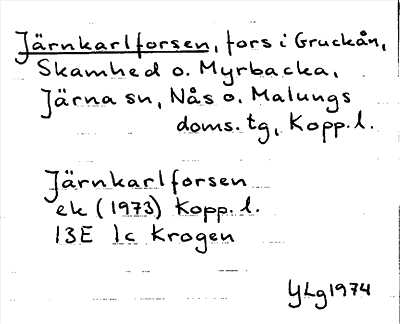 Järnkarlforsen, fors i Gruckån,
Skamhed o. Myrbacka,
Järna sn, Nås o. Malungs
doms. tg, Kopp. l.
Järnkarlforsen
ek (1973) Kopp. l.
13E 1c Krogen
YLg 1974